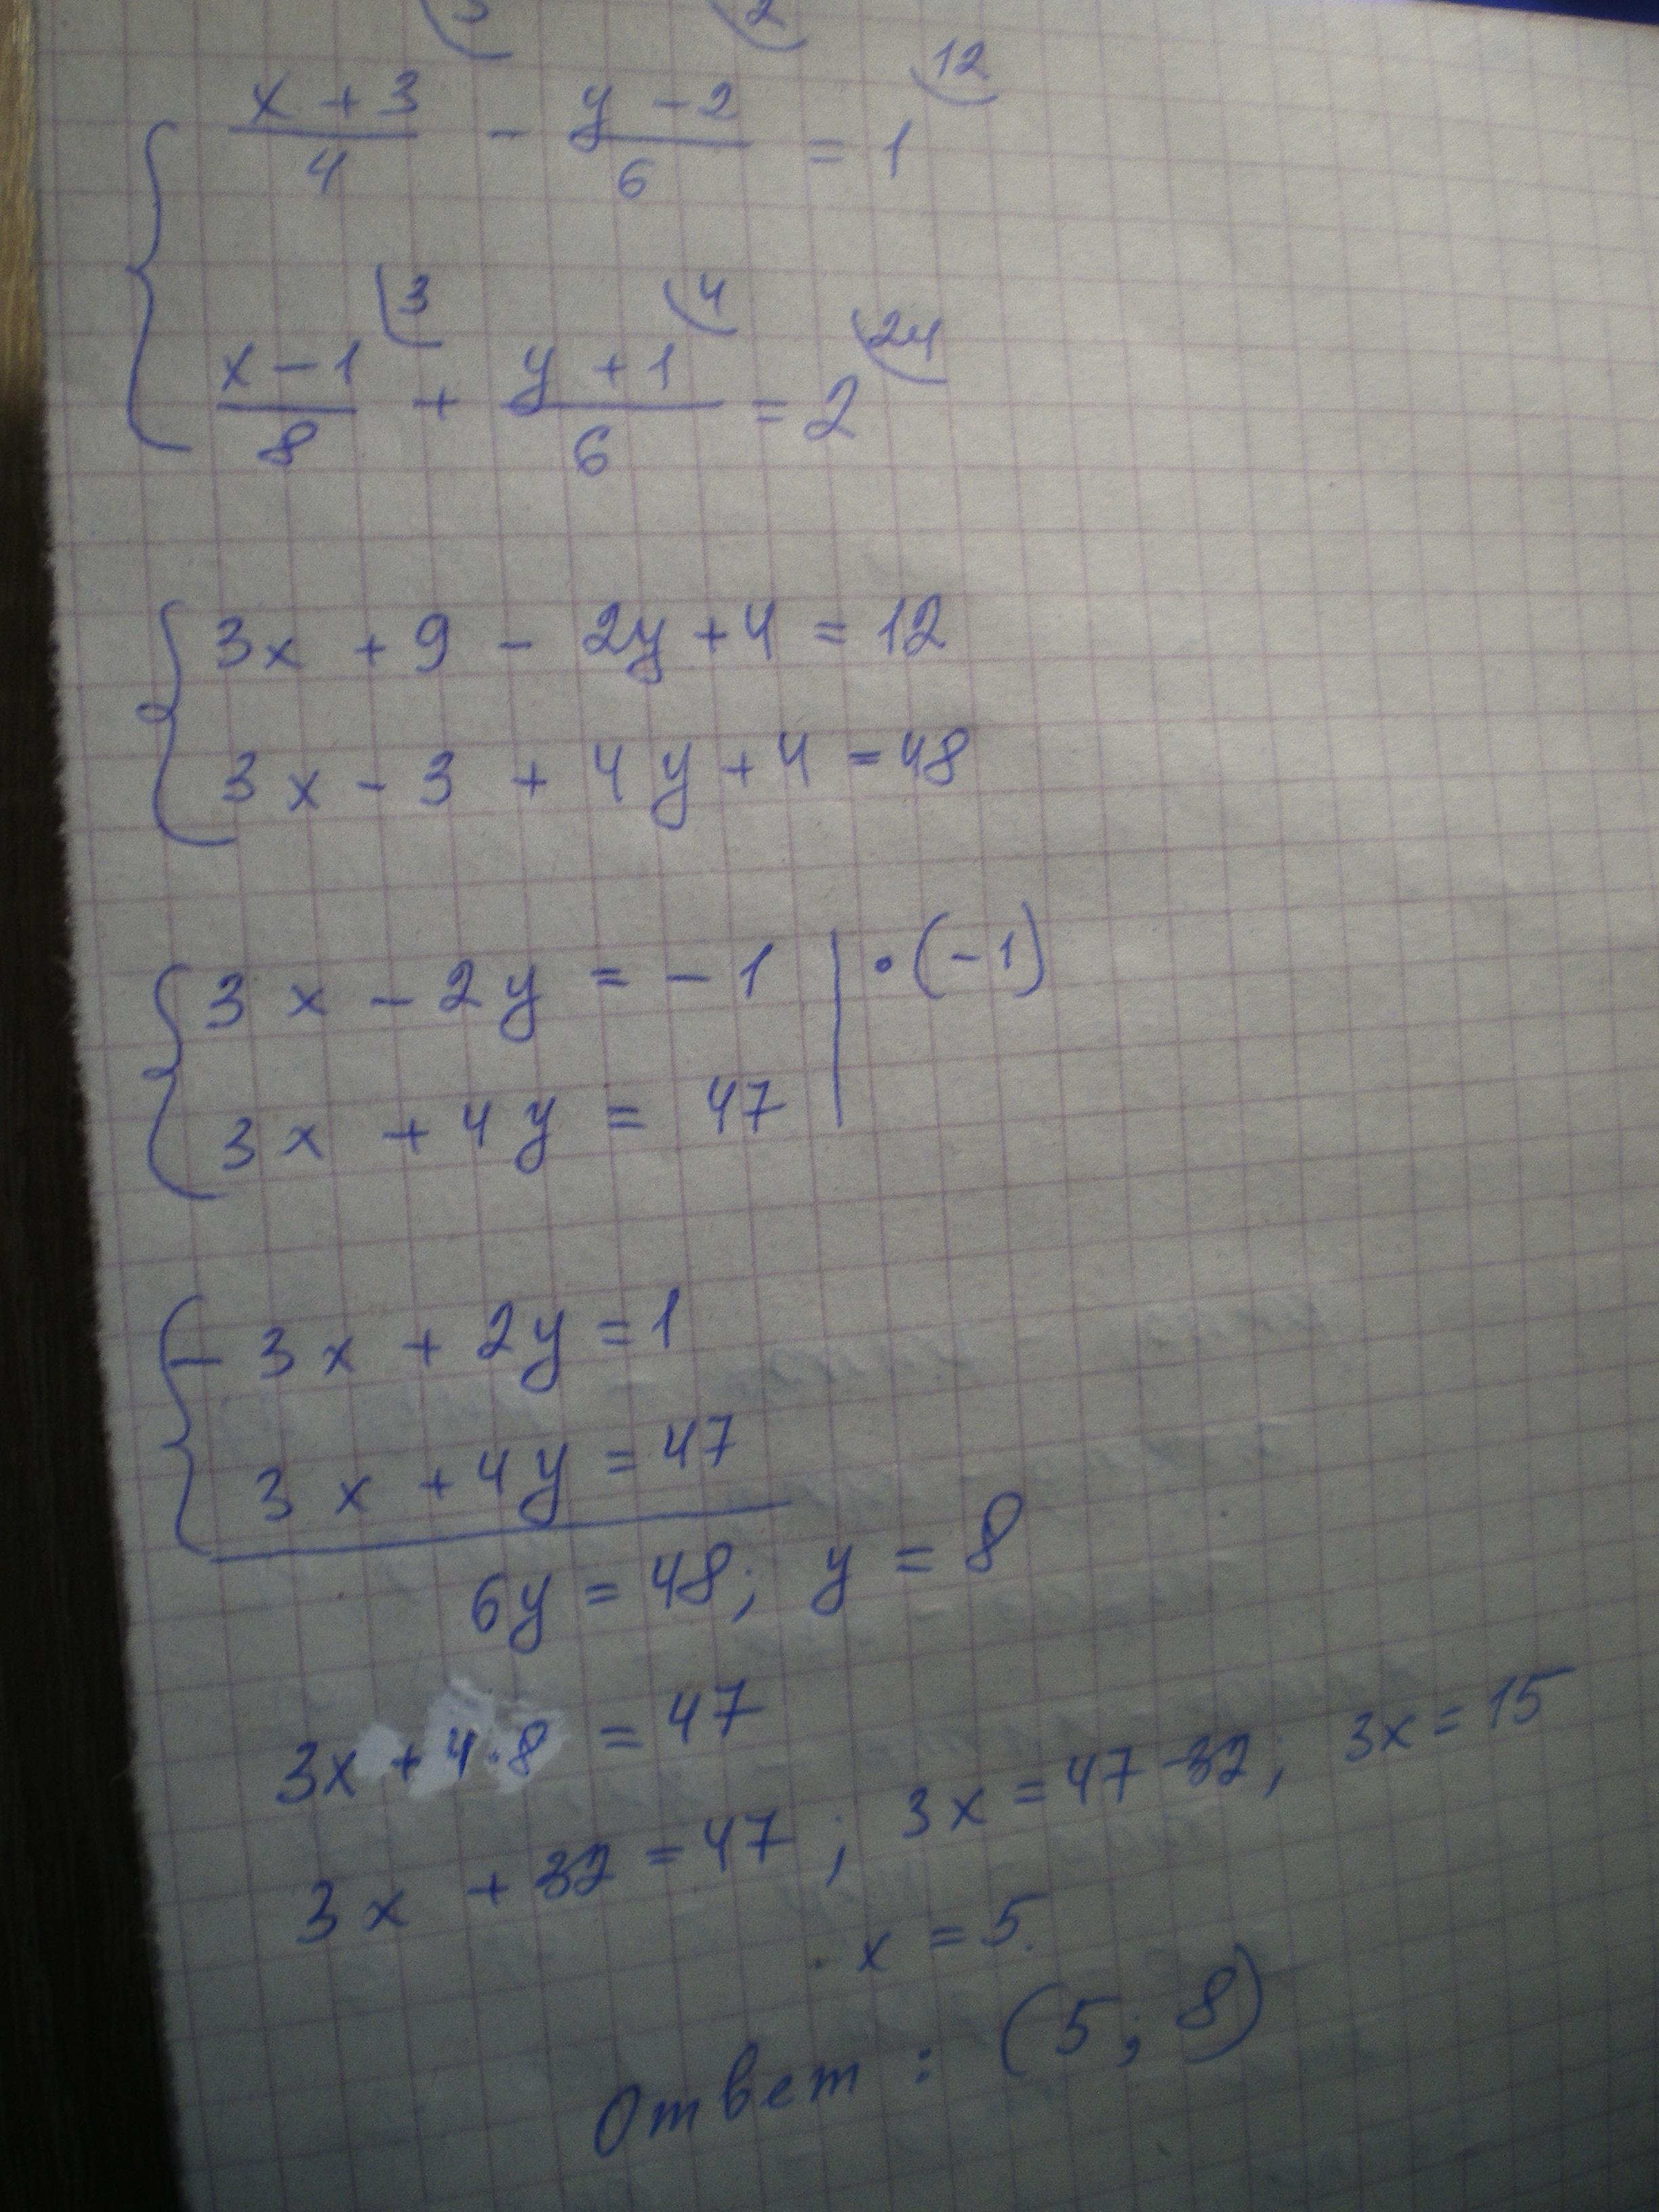 3 2
x + 3 / 4 - y - 2 / 6 = 1 12
3 4 24
x - 1 / 8 + y + 1 / 6 = 2
3x + 9 - 2y + 4 = 12
3x - 3 + 4y + 4 = 48
3x - 2y = -1 | · (-1)
3x + 4y = 47
- 3x + 2y = 1
3x + 4y = 47
6y = 48; y = 8
3x + 4·8 = 47
3x + 32 = 47; 3x = 47 - 32; 3x = 15
x = 5.
Ответ: (5; 8)